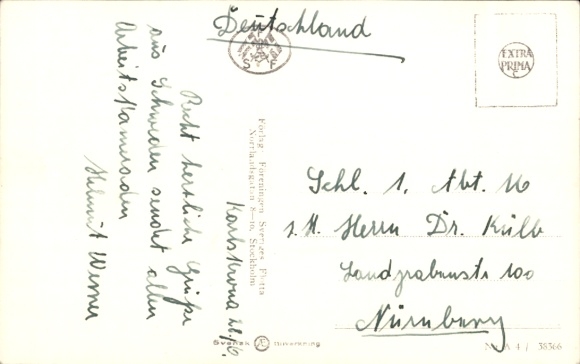 Deutschland
EXTRA
PRIMA
Karlskrona 22/6.
Recht herzliche Grüße
aus Schweden sendet allen
Arbeitskameraden
Helmut Werner
Förlag Föreningen Sveriges Flotta
Norrlandsgatan 8-10, Stockholm
Schl. 1. Abt. 16
z.H. Herrn Dr. Külb
Landgrabenstr 100
Nürnberg
Svensk Tillverkning
Nr. A 4 / 38566